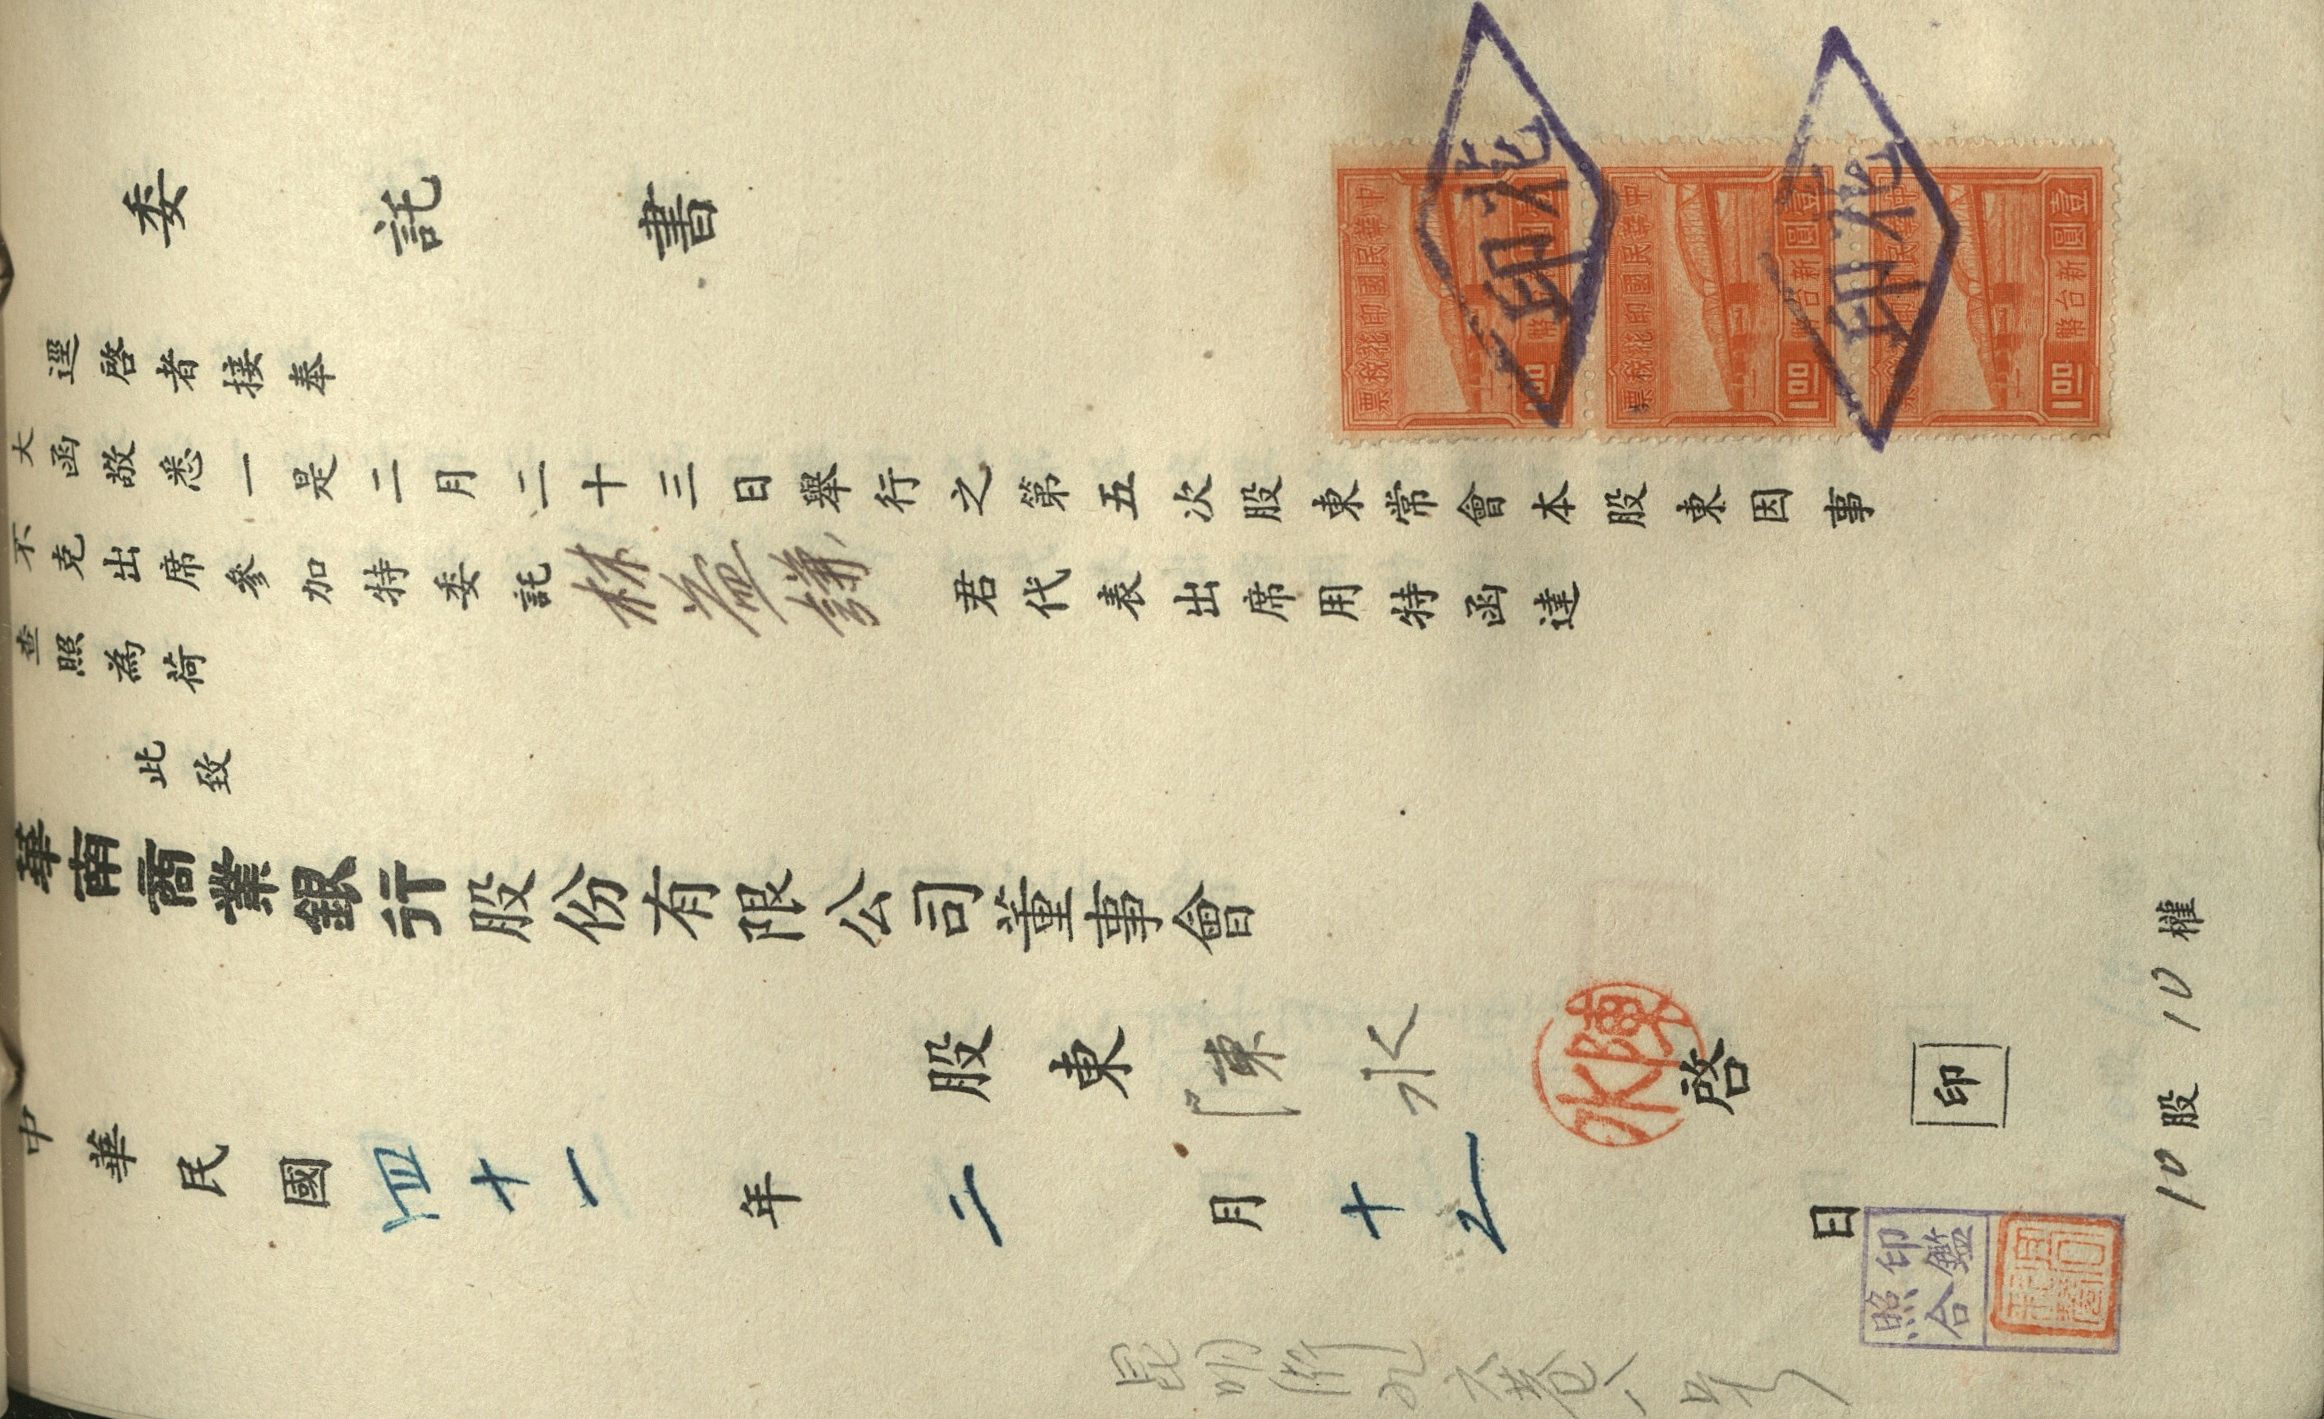 委託書
逕啓者接奉
大函敬悉一是二月二十三日舉行之第五次股東常會本股東因事
不克出席參加特委託林益謙君代表出席用特函達
查照為荷
此致
華南商業銀行股份有限公司董事會
股東陳水啓印
中華民國四十一年二月十九日
10股10權
中華民國印花稅票
壹圓新台幣
1.00
中華民國印花稅票
壹圓新台幣
1.00
中華民國印花稅票
壹圓新台幣
1.00
印花
印花
陳水
印鑑
照合
昆明街